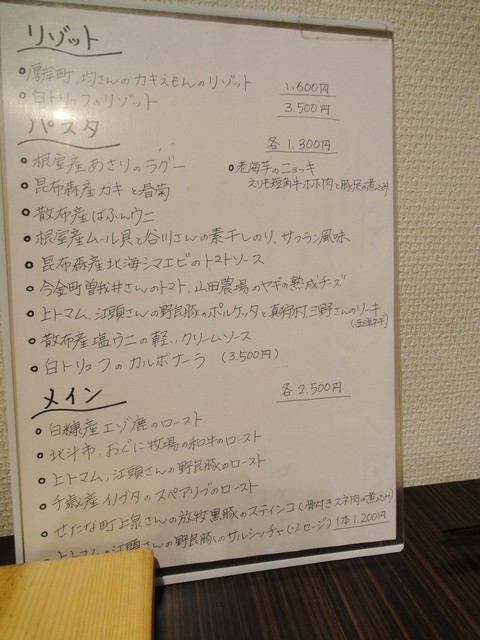 リゾット
• 厚岸町、均さんのカキえもんのリゾット 1.600円
• 白トリュフのリゾット 3.500円
パスタ 各1.300円
• 根室産あさりのラグー
• 老海芋のニョッキ
えりも短角牛ホホ肉と豚足の煮込み
• 昆布森産カキと春菊
• 散布産ばふんウニ
• 根室産ムール貝と谷川さんの素干しのり、サフラン風味
• 昆布森産北海シマエビのトマトソース
• 今金町曽我井さんのトマト、山田農場のヤギの熟成チーズ
• 上トマム、江頭さんの野良豚のポルケッタと真狩村三野さんのリーキ
(西洋ネギ)
• 散布産塩ウニの軽いクリームソース
• 白トリュフのカルボナーラ (3.500円)
メイン 各2.500円
• 白糠産エゾ鹿のロースト
• 北斗市、おぐに牧場の和牛のロースト
• 上トマム、江頭さんの野良豚のロースト
• 千歳産イノブタのスペアリブのロースト
• せたな町上泉さんの放牧黒豚のスティンコ(骨付きスネ肉の煮込み)
• 上トマムの江頭さんの野良豚のサルシッチャ(ソーセージ) 1本1.200円